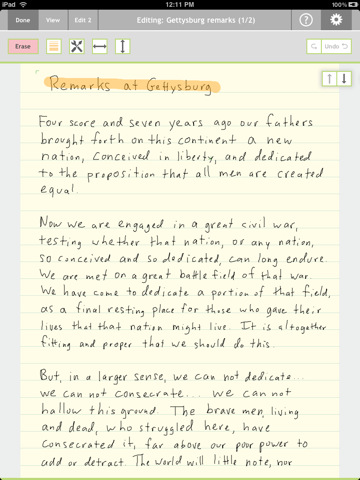 iPad
12:11 PM
100%
Done View Edit 2 Editing: Gettysburg remarks (1/2) ?
Erase Undo
Remarks at Gettysburg
Four score and seven years ago our fathers
brought forth on this continent a new
nation, conceived in liberty, and dedicated
to the proposition that all men are created
equal.
Now we are engaged in a great civil war,
testing whether that nation, or any nation,
so conceived and so dedicated, can long endure.
We are met on a great battle field of that war.
We have come to dedicate a portion of that field,
as a final resting place for those who gave their
lives that that nation might live. It is altogether
fitting and proper that we should do this.
But, in a larger sense, we can not dedicate...
we can not consecrate... we can not
hallow this ground. The brave men, living
and dead, who struggled here, have
consecrated it, far above our poor power to
add or detract. The world will little note, nor